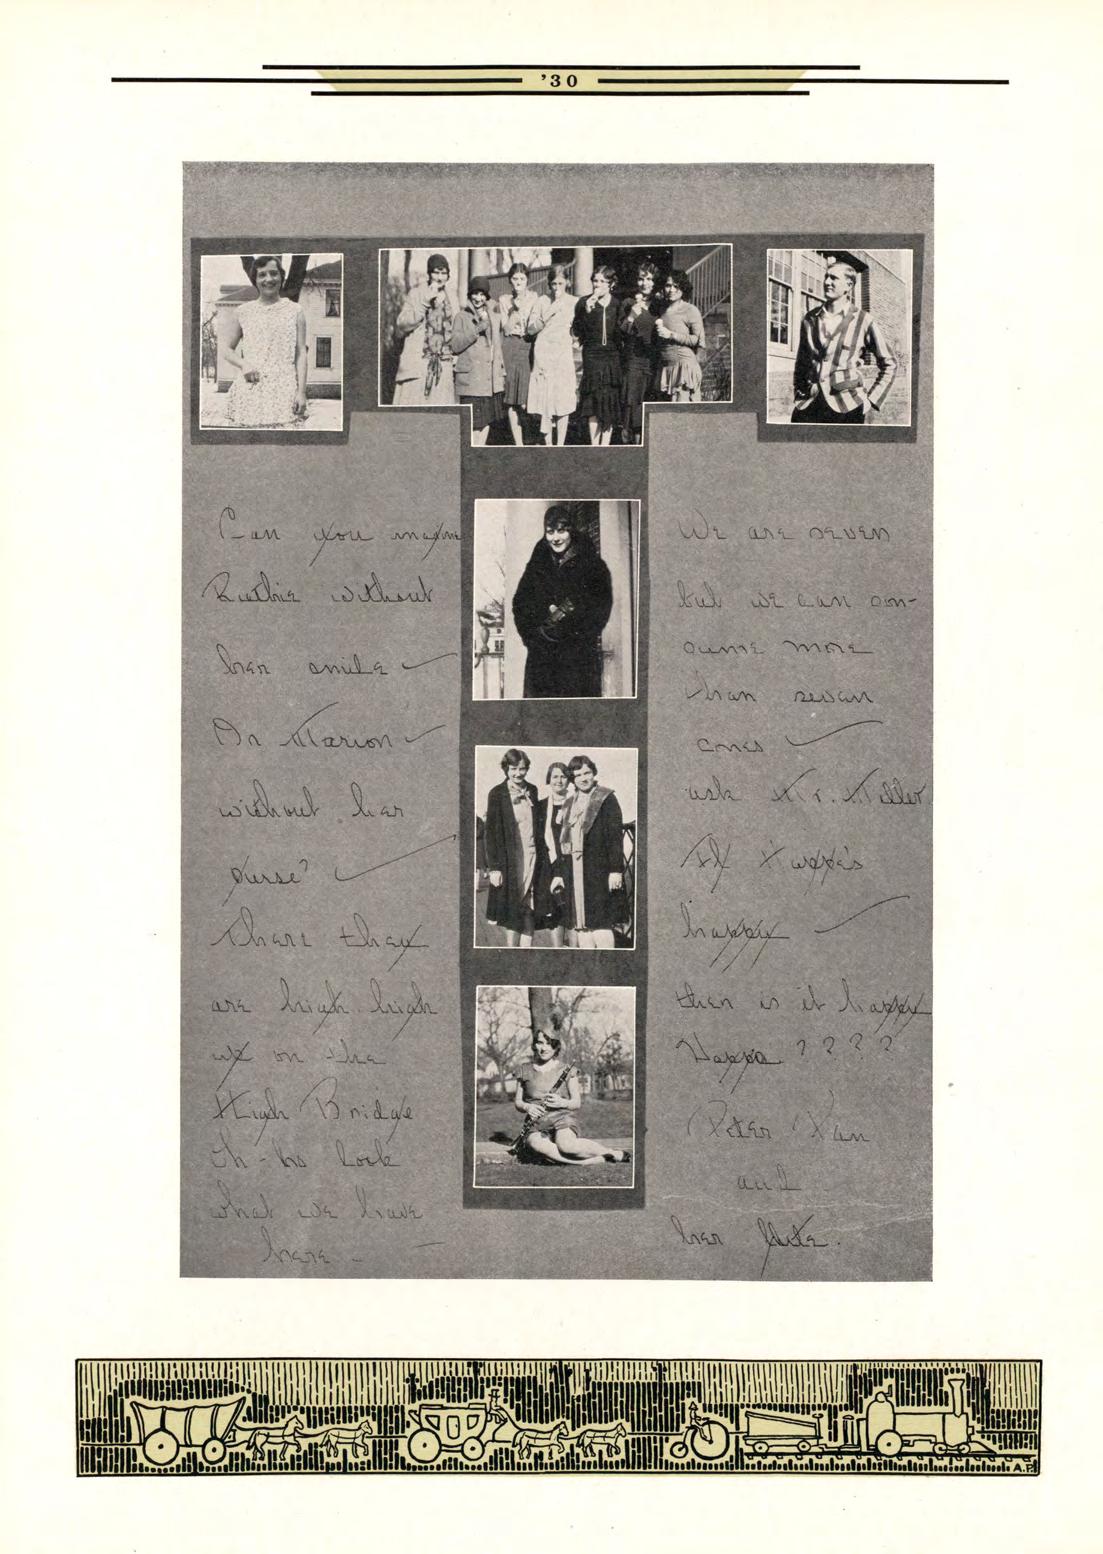 '30
Can you imagine
Ruthie without
her smile
Or Marion
without her
purse?
There they
are high high
up on the
High Bridge
Oh-ho look
what we have
here -
We are seven
but we can con-
sume more
than seven
cones
ask Mr. Miller
If Happe's
happy
then is it happy
Happe ????
Peter Pan
and
her flute.
A.P.